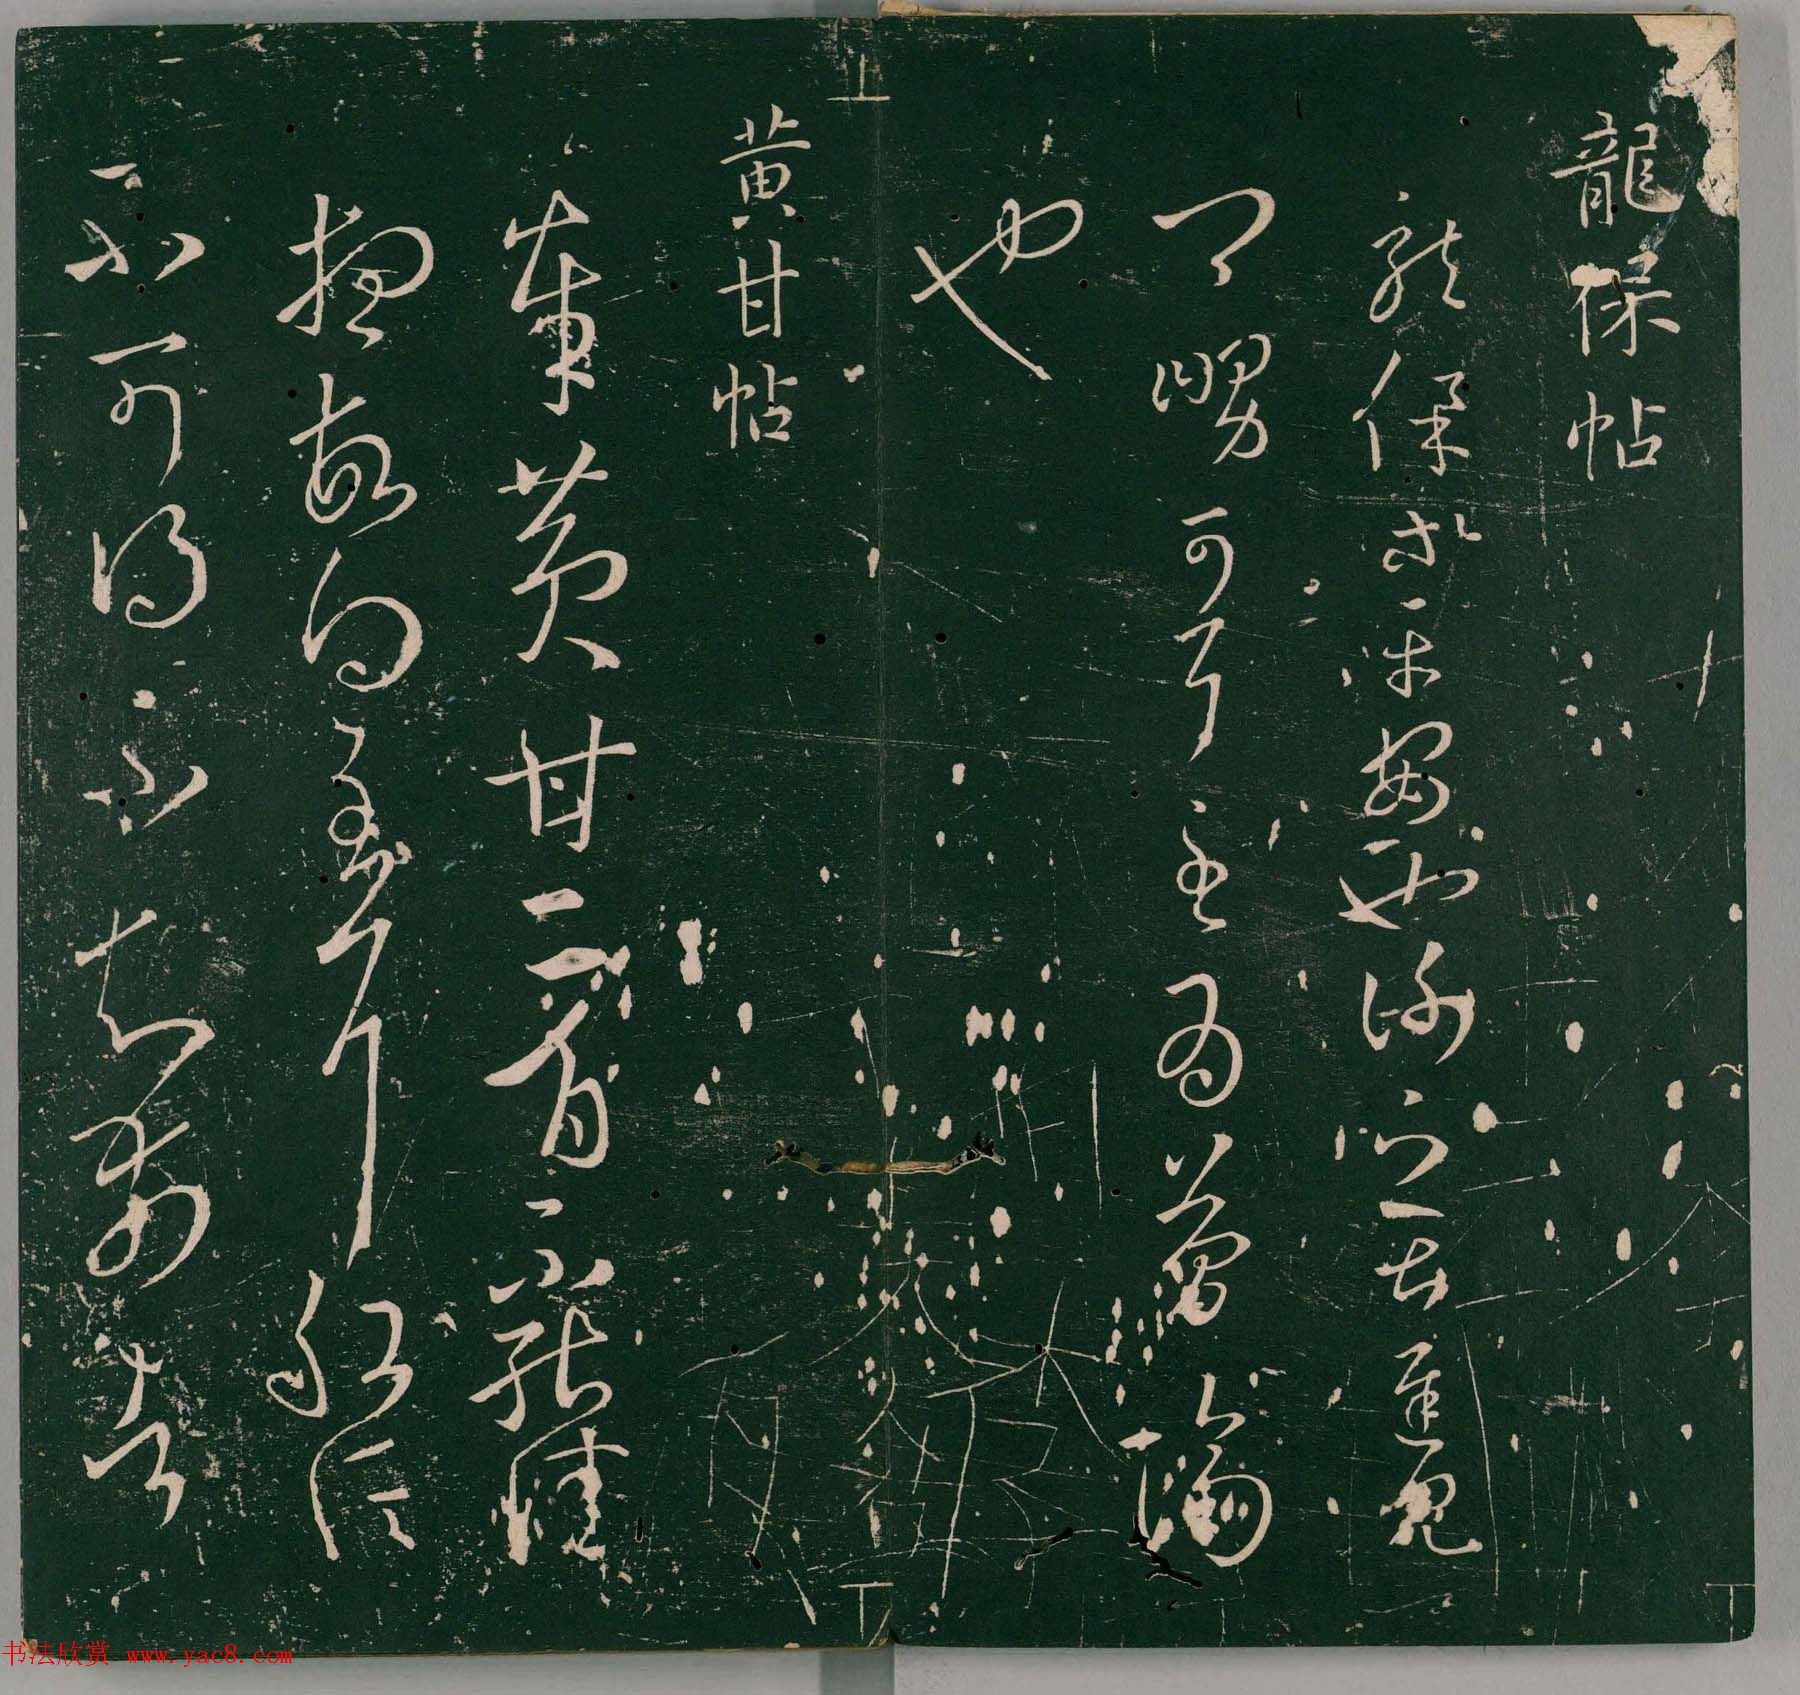 龍保帖
龍保等平安也謝之甚遲見
卿舅可耳至為簡隔
也
黄甘帖
奉黄甘二百不能佳
想故得至耳船信
不可得不知前者
书法欣赏 www.yac8.com